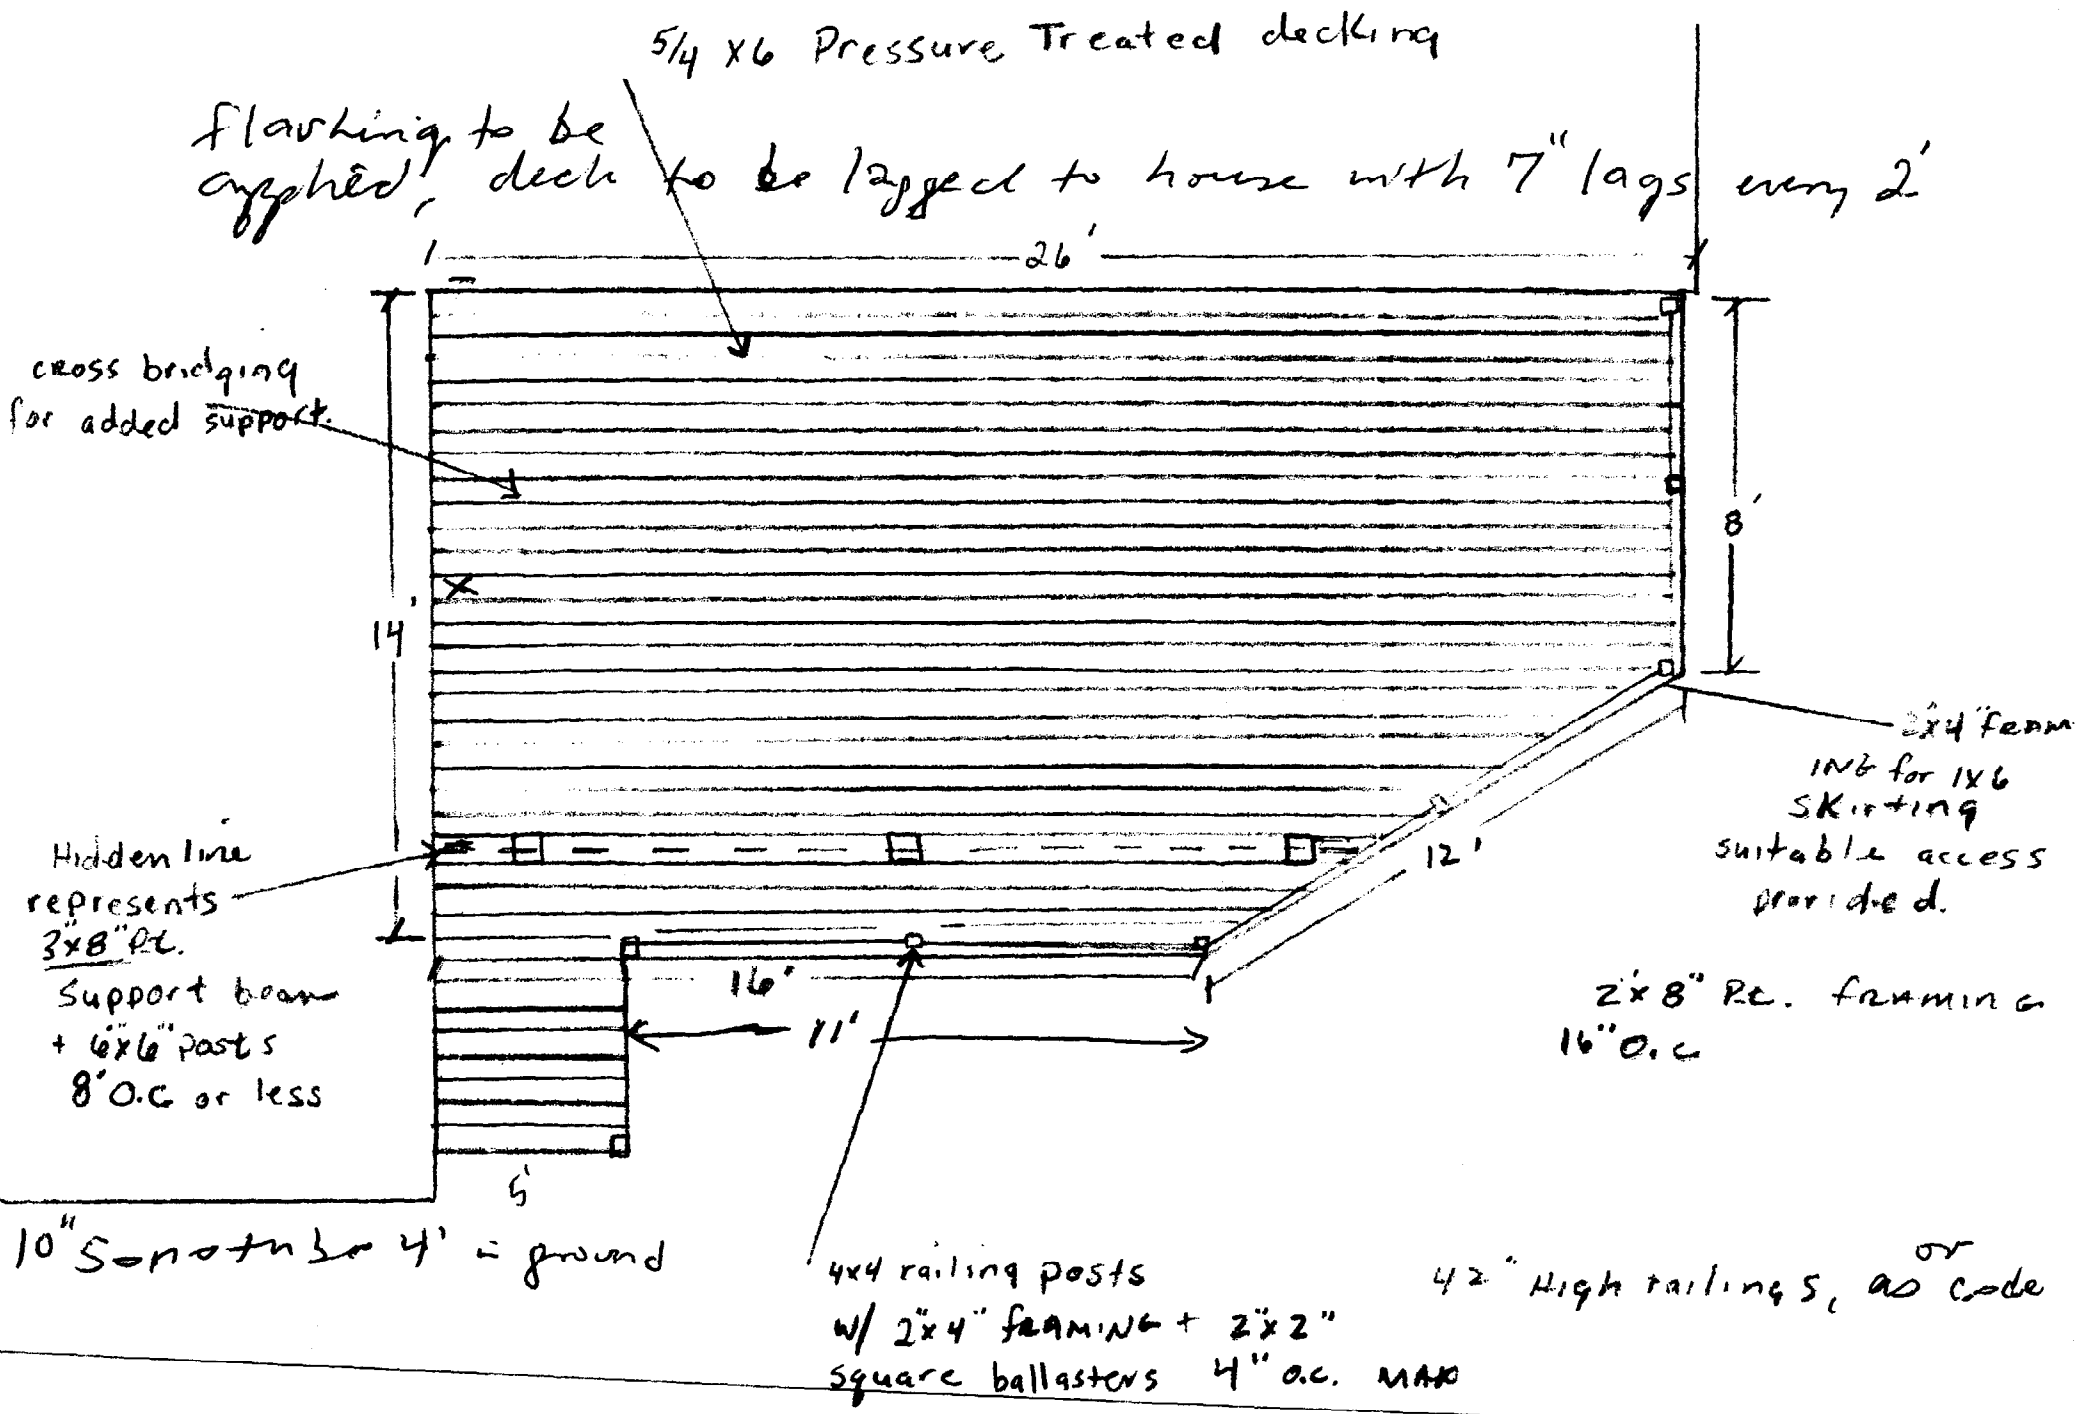 5/4 x6 Pressure Treated decking
flashing to be
applied, deck to be lagged to house with 7" lags every 2'
26'
cross bridging
for added support.
8'
14'
2"x4" FRAM
ING for 1x6
SKirting
suitable access
provided.
Hidden line
represents
3"x8" P.t.
Support beam
+ 6"x6" posts
8' O.C or less
12'
16'
11'
2"x8" P.t. FRAMING
16" O.C
5'
10" Sonotube 4' in ground
4x4 railing posts
w/ 2"x4" FRAMING + 2"x2"
square ballasters 4" o.c. MAX
42" High railings, or
as code